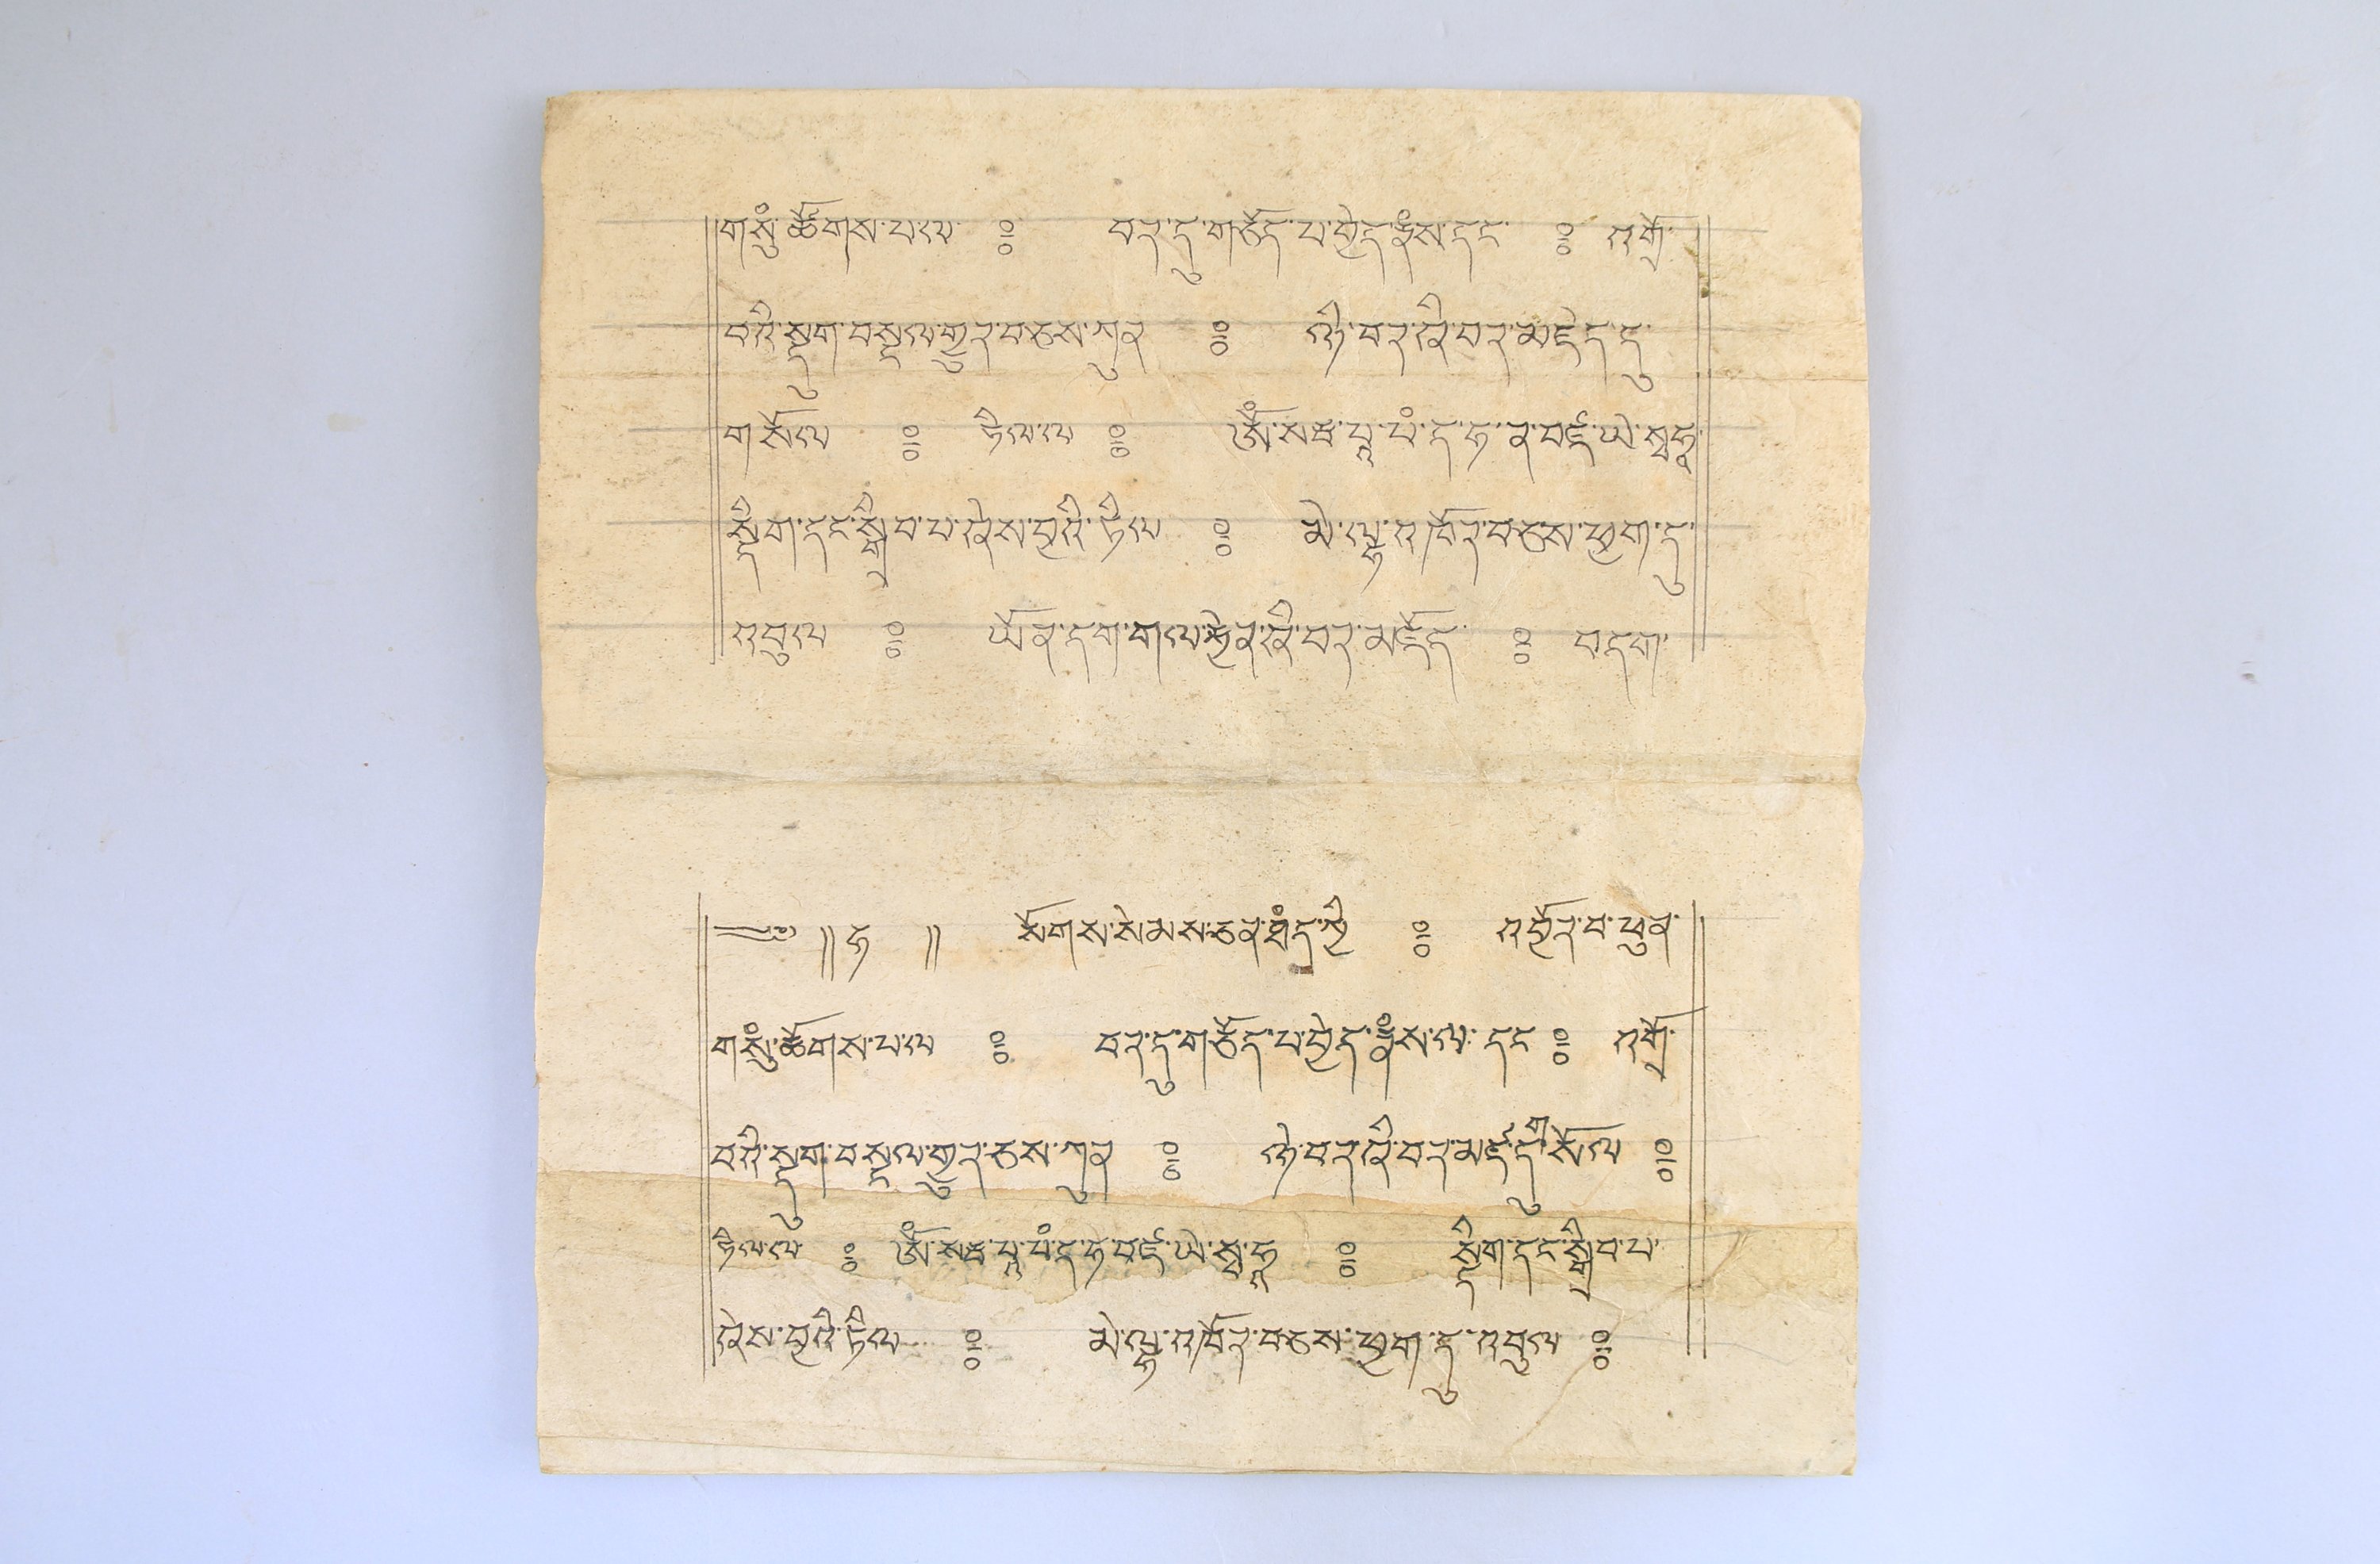 གསུཾ་ཚོགས་པ་ལ༔ བར་དུ་གཙོད་པ་བྱེད་རྣཾས་དང༔ འགྲོ་
བའི་སྡུག་བསྔལ་གྱུར་བཅས་ཀུན༔ ཉེ་བར་ཞི་བར་མཛེད་དུ་
གསོལ༔ ཏིལ་ལ༔ ཨོཾ་སརྦ་པཱ་པཾ་ད་ཧ་ན་བཛྲ་ཡེ་སྭཧཱ་
སྡིག་དང་སྒྲིབ་པ་ཞེས་བྱའི་ཏིལ༔ མེ་ལྷ་འཁོར་བཅས་ཕྱག་དུ་
འབུལ༔ ཡོན་དག་གལ་རྐྱེན་ཞི་བར་མཛོད༔ བདག་
༄༅།།ཧ།། སོགས་སེམས་ཅན་ཐཾད་ཀྱི༔ འབྱོར་བ་ཕུན་
གསུཾ་ཚོགས་པ་ལ༔ བར་དུ་གཙོད་པ་བྱེད་རྣཾས་ལ་དང༔ འགྲོ་
བའི་སྡུག་བསྔལ་གྱུར་ཅས་ཀུན༔ ཉེ་བར་ཞི་བར་མཛད་དུ་གསོལ༔
ཏིལ་ལ༔ ཨོཾ་སརྦ་པཱ་པཾ་ད་ཧ་བཛྲ་ཡེ་སྭ་ཧཱ༔ སྡིག་དང་སྒྲིབ་པ་
ཞེས་བྱའི་ཏིལ༔ མེ་ལྷ་འཁོར་བཅས་ཕྱག་དུ་འབུལ༔